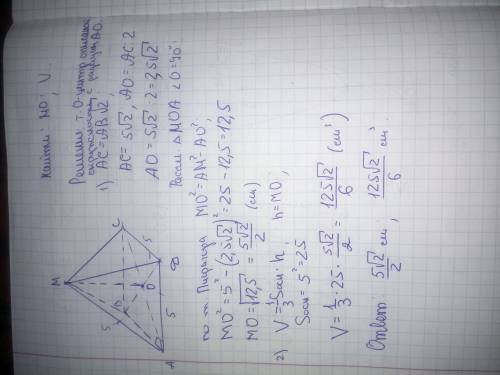 Найти: МО; V.
Решение: т. О-центр описанной
окружности, с радиусом АО.
1) AC = AB√2;
AC = 5√2; AO = AC:2
AO = 5√2 : 2 = 2,5√2
Рассм △MOA ∠O=90°
по т. Пифагора MO² = AM² - AO²;
MO² = 5² - (2,5√2)² = 25 - 12,5 = 12,5
MO = √12,5 = 5√2/2 (см)
2) V = 1/3 Sосн · h; h = MO;
Sосн = 5² = 25
V = 1/3 · 25 · 5√2/2 = 125√2/6 (см³)
Ответ: 5√2/2 см; 125√2/6 см³.
M
C
5
D
O
5
B
A
5